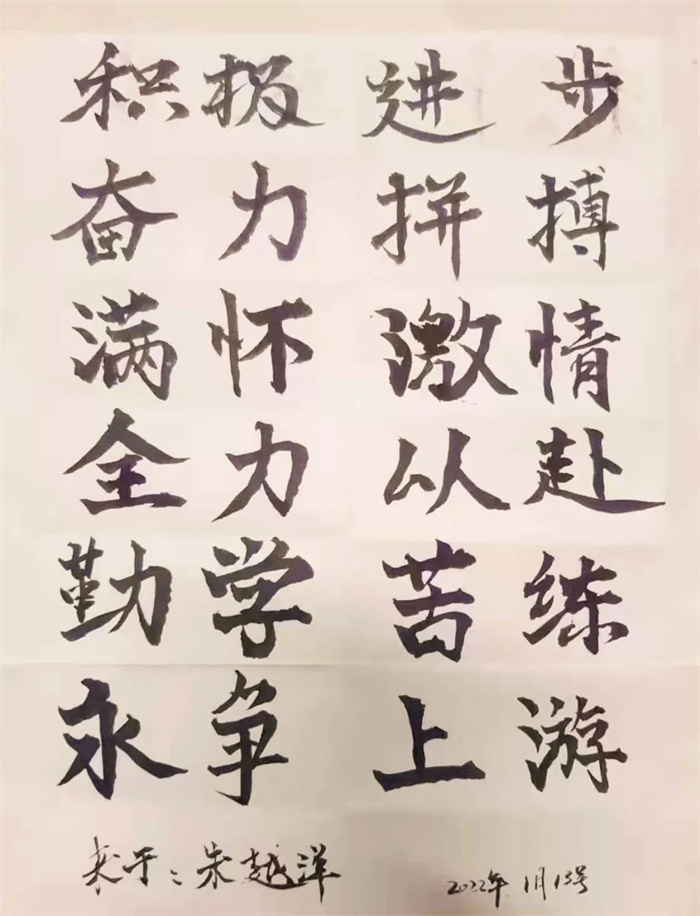 积极进步
奋力拼搏
满怀激情
全力以赴
勤学苦练
永争上游
来于:朱越洋 2022年1月13号